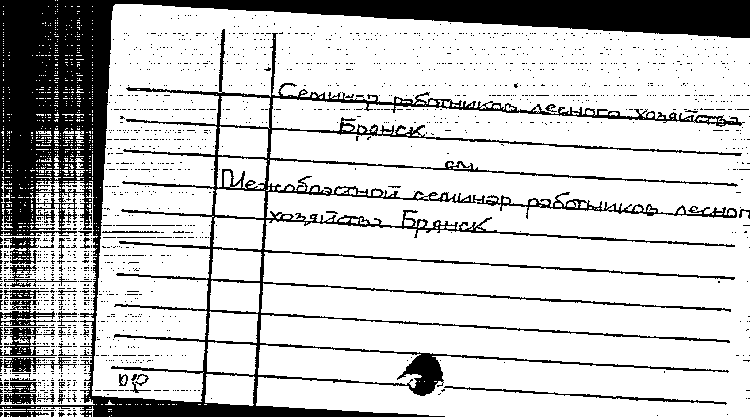 Семинар работников лесного хозяйства
Брянск
см.
Межобластной семинар работников лесног
хозяйства Брянск